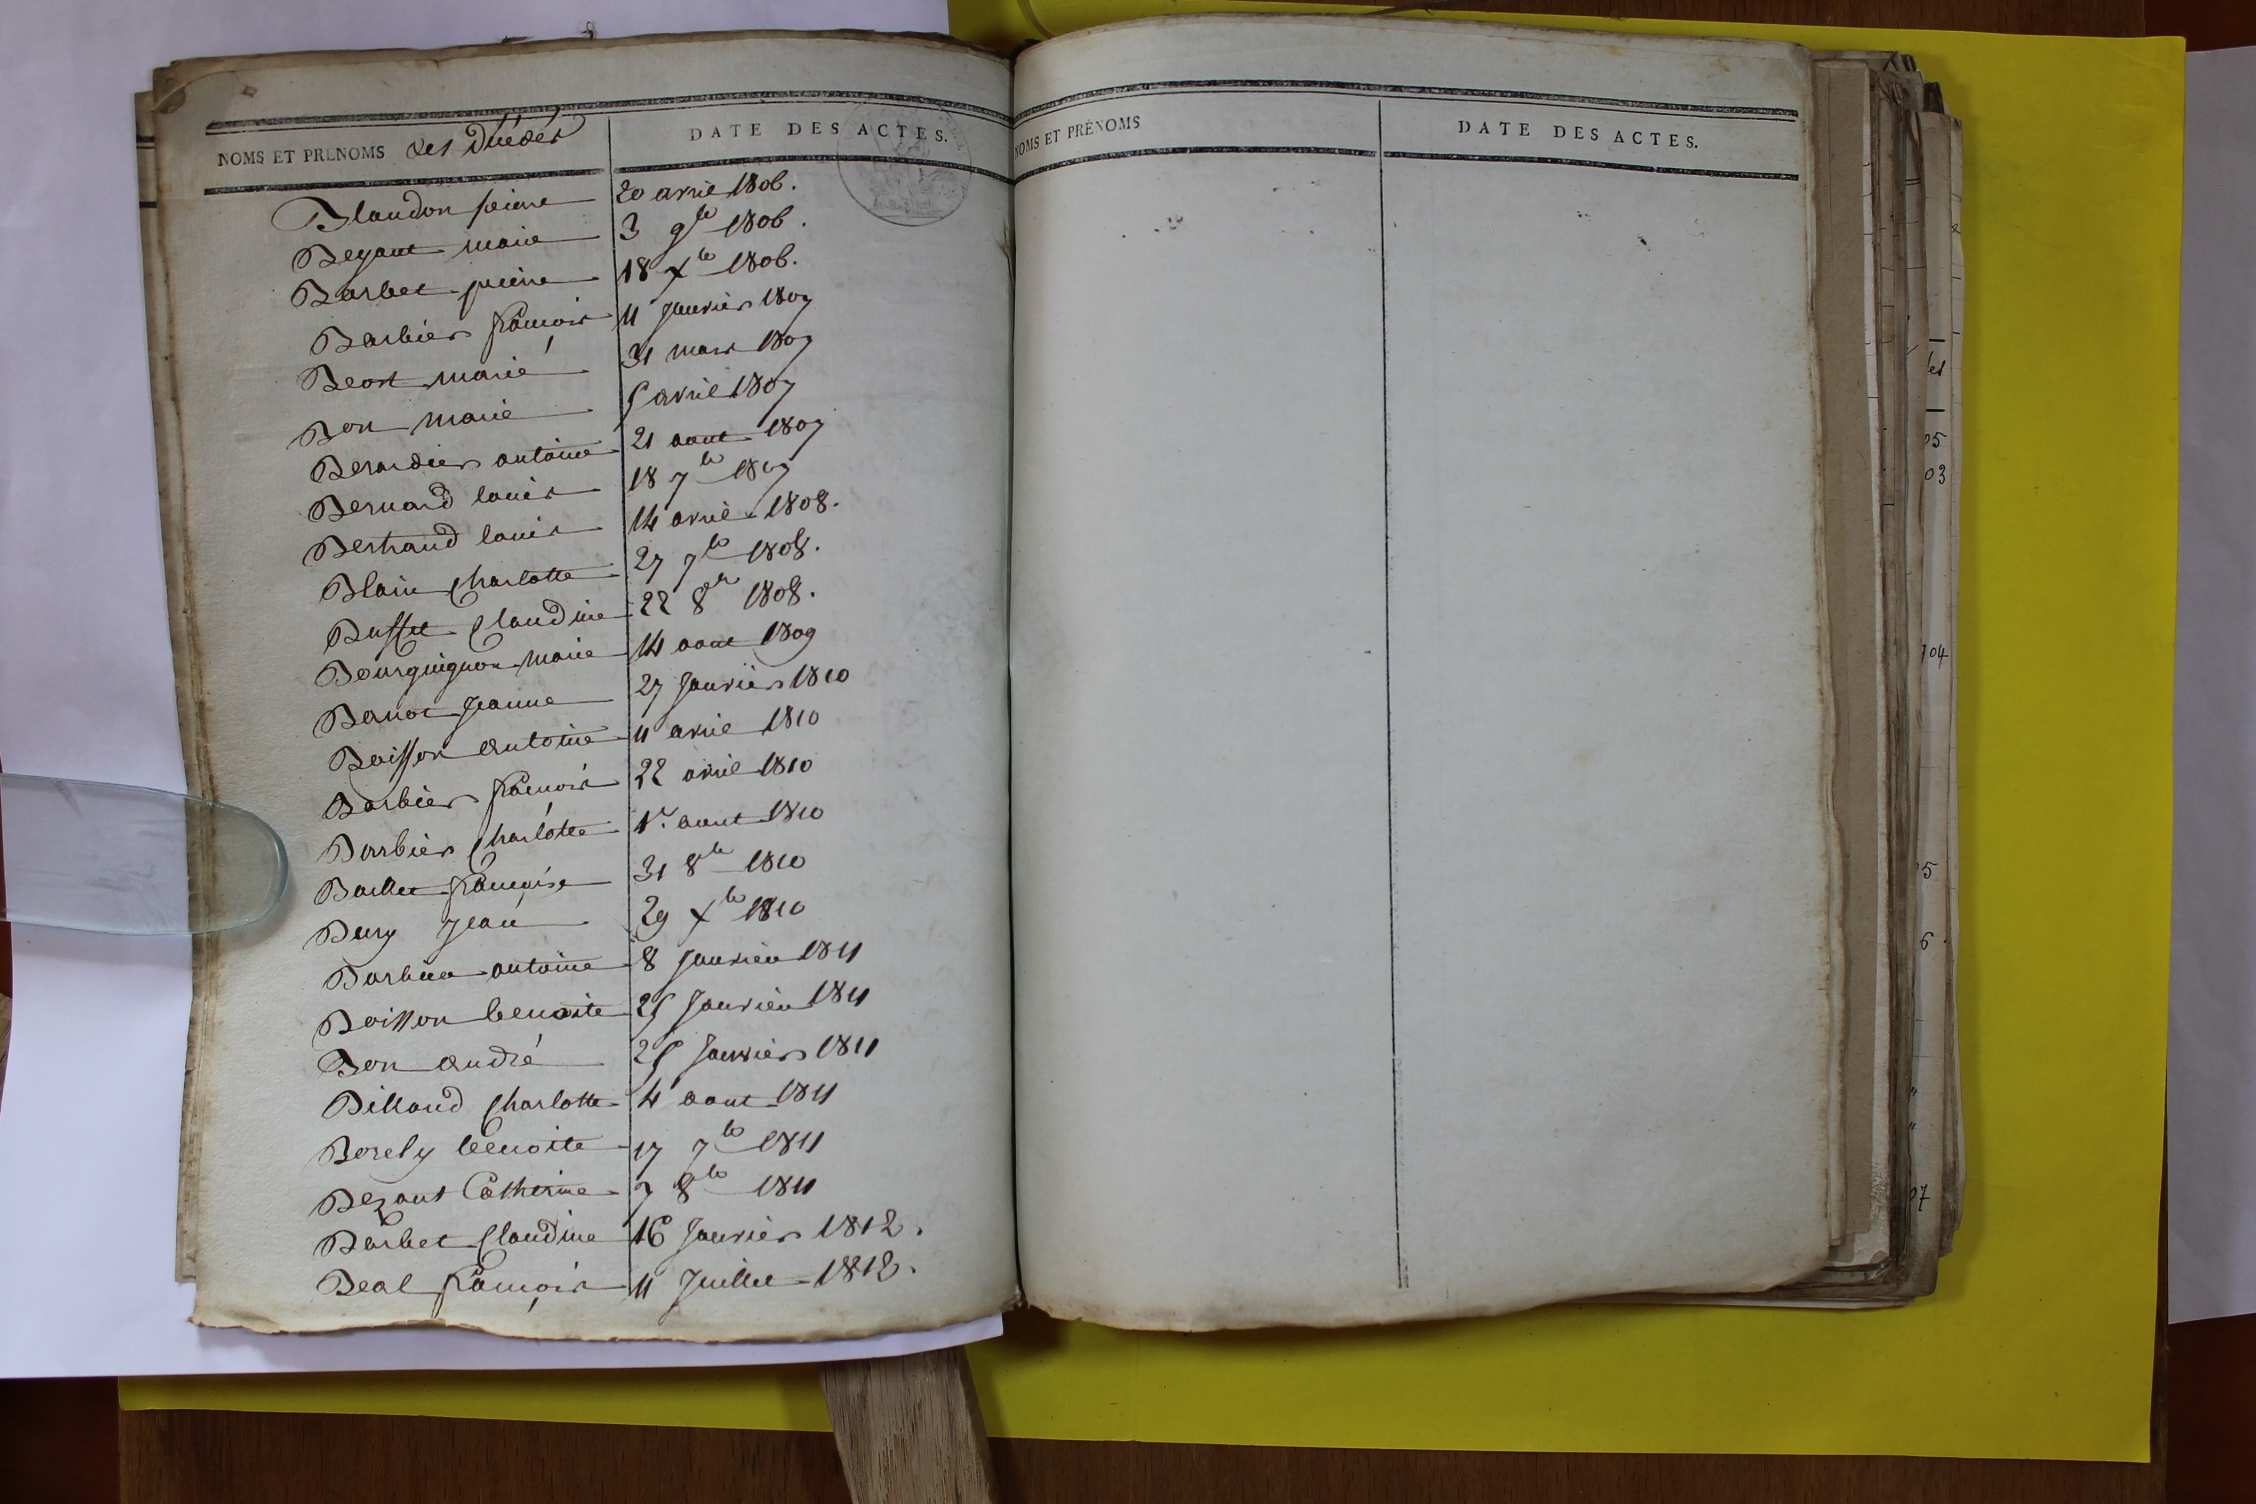 NOMS ET PRENOMS des Décédés DATE DES ACTES.
Blaudon pierre 20 avril 1806.
Bezant marie 3 9bre 1806.
Barbet pierre 18 Xbre 1806.
Barbier françois 11 Janvier 1807
Beost marie 31 mars 1807
Bon marie 5 avril 1807
Berardier antoine 21 aout 1807
Bernard louis 18 7bre 1807
Bertrand louis 14 avril 1808.
Blain Charlotte 27 7bre 1808.
Buffet Claudine 22 8bre 1808.
Bourguignon marie 14 aout 1809
Bernot Jeanne 27 Janvier 1810
Boisson antoine 11 avril 1810
Barbier françois 22 avril 1810
Barbier Charlotte 1r. aout 1810
Baillet françoise 31 8bre 1810
Bury Jean 29 Xbre 1810
Barbier antoine 8 Janvier 1811
Boisson benoite 25 Janvier 1811
Bon andré 25 Janvier 1811
Billaud Charlotte 4 aout 1811
Borely benoite 17 7bre 1811
Bezant Catherine 7 8bre 1811
Barbet Claudine 16 Janvier 1812.
Beal françois 11 Juillet 1812.
NOMS ET PRÉNOMS DATE DES ACTES.